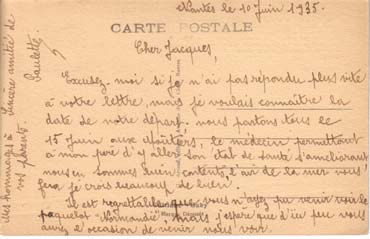 Nantes le 10 Juin 1935.
CARTE POSTALE
Cher Jacques,
Excusez-moi si je n'ai pas répondu plus vite
à votre lettre, mais je voulais connaître la
date de notre départ. nous partons tous le
15 Juin aux Moutiers, le médecin permettant
à mon père d'y aller, son état de santé s'améliorant
nous en sommes bien contents, l'air de la mer vous
fera je crois beaucoup de bien.
Il est regrettable que vous n'ayez pu venir voir le
paquebot "Normandie", mais j'espère que d'ici peu vous
aurez l'occasion de venir nous voir.
Mes hommages à
vos parents.
Sincère amitié de
Paulette.